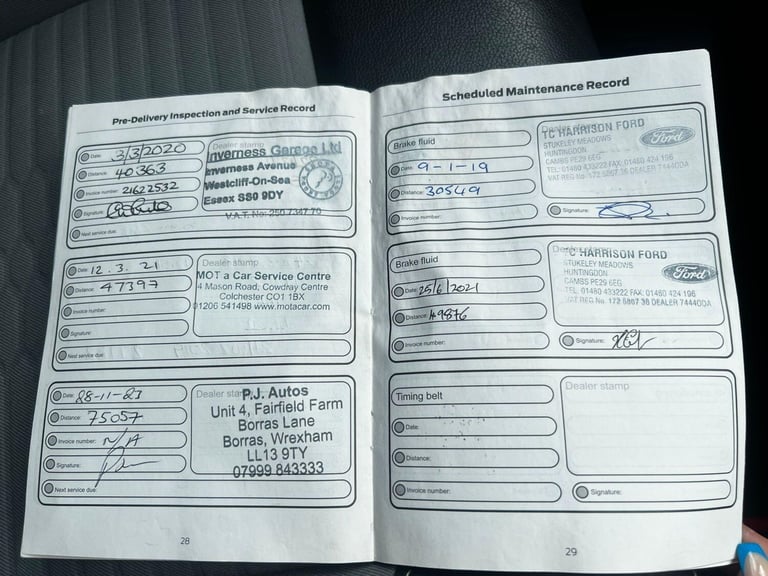 Pre-Delivery Inspection and Service Record
Date: 3/3/2020
Distance: 40363
Invoice number: 21622532
Signature:
Next service due:
Dealer stamp
Inverness Garage Ltd
Inverness Avenue
Westcliff-On-Sea
Essex SS0 9DY
V.A.T. No: 250 7347 70
Date: 12.3.21
Distance: 47397
Invoice number:
Signature:
Next service due:
Dealer stamp
MOT a Car Service Centre
4 Mason Road, Cowdray Centre
Colchester CO1 1BX
01206 541498 www.motacar.com
Date: 28-11-23
Distance: 75057
Invoice number: N/A
Signature:
Next service due:
Dealer stamp
P.J. Autos
Unit 4, Fairfield Farm
Borras Lane
Borras, Wrexham
LL13 9TY
07999 843333
28
Scheduled Maintenance Record
Brake fluid
Date: 9-1-19
Distance: 30549
Invoice number:
Dealer stamp
TC HARRISON FORD
STUKELEY MEADOWS
HUNTINGDON
CAMBS PE29 6EG
TEL: 01480 433222 FAX: 01480 424 196
VAT REG No. 172 5867 36 DEALER 7440DA
Ford
Signature:
Brake fluid
Date: 25/6/2021
Distance: 49876
Invoice number:
Dealer stamp
TC HARRISON FORD
STUKELEY MEADOWS
HUNTINGDON
CAMBS PE29 6EG
TEL: 01480 433222 FAX: 01480 424 196
VAT REG No. 172 5867 36 DEALER 7440DA
Ford
Signature:
Timing belt
Date:
Distance:
Invoice number:
Dealer stamp
Signature:
29